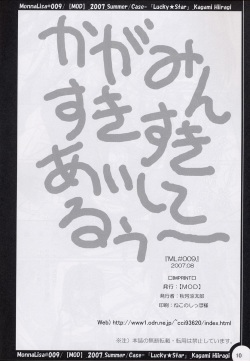 MonnaLisa#009 / [MOD] 2007 Summer/Case- 「Lucky★Star」 Kagami Hiiragi
かがみん
すきすき
あいして
るぅ〜
『ML#009』
2007.08
□IMPRINT□
発行：【MOD】
印刷：ねこのしっぽ様
Web) http://www1.odn.ne.jp/~cci93620/index.html
※注）本誌の無断転載・転用は禁止しています。
MonnaLisa#009 / [MOD] 2007 Summer/Case- 「Lucky★Star」 Kagami Hiiragi